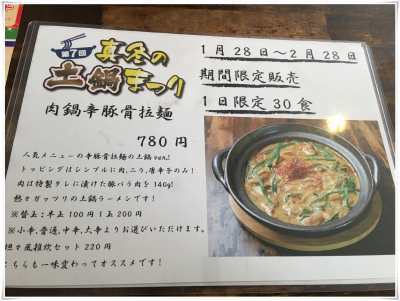 第7回
真冬の
土鍋まつり
1月28日～2月28日
期間限定販売
1日限定30食
肉鍋辛豚骨拉麺
780円
人気メニューの辛豚骨拉麺の土鍋ver!
トッピングはシンプルに肉、ニラ、唐辛子のみ!
肉は特製タレに漬けた豚バラ肉を140g!
熱々ガッツリの土鍋ラーメンです!
※替玉:半玉100円1玉200円
※小辛、普通、中辛、大辛よりお選びいただけます。
担々風雑炊セット220円
こちらも一味変わってオススメです!